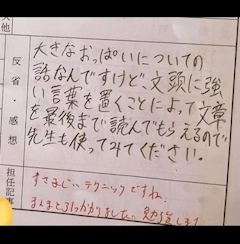 大きなおっぱいについての
話なんですけど、文頭に強
い言葉を置くことによって文章
を最後まで読んでもらえるので
先生も使ってみてください。
反省・感想
すさまじいテクニックですね。
まんまと引っかかりました。勉強します
担任記事